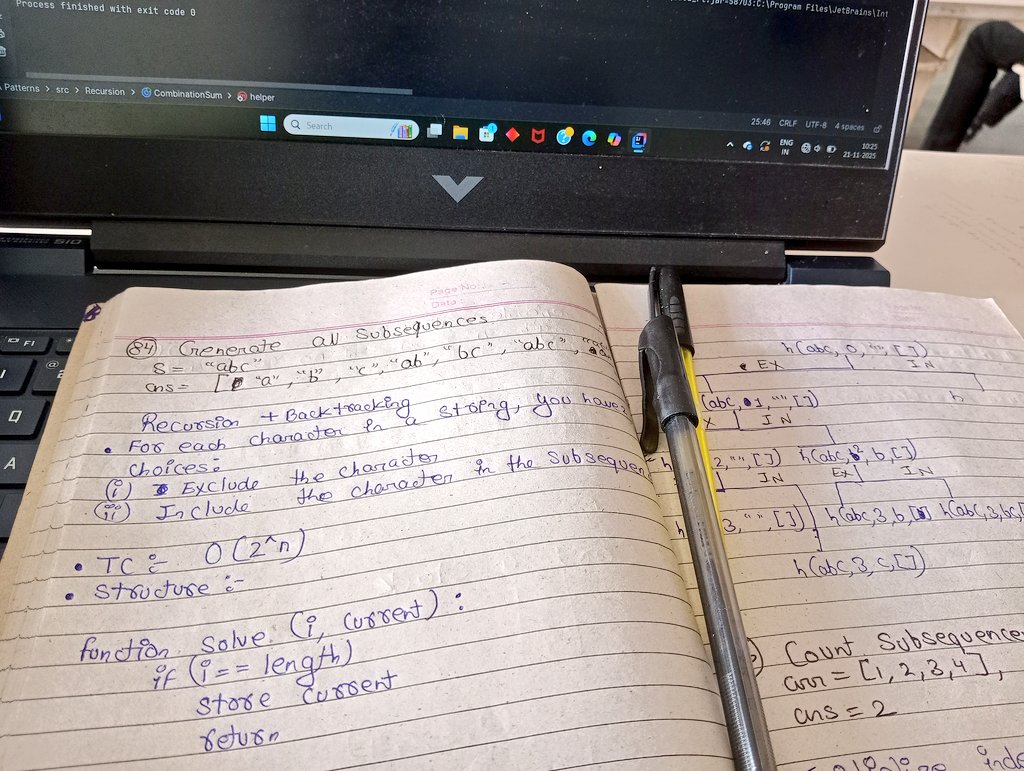 Process finished with exit code 0
C:\Program Files\JetBrains\Int
Patterns > src > Recursion > CombinationSum > helper
25:46 CRLF UTF-8 4 spaces
Search
ENG
IN
10:25
21-11-2025
F1
Q
A
Page No.
Date
84) Generate all Subsequences
S = "abc"
ans = [ "a", "b", "c", "ab", "bc", "abc",
Recursion + Backtracking
• For each character in a string, you have
choices:
(i) Exclude the character
(ii) Include the character in the Subsequen
• TC :- O(2^n)
• Structure :-
function solve (i, current) :
if (i == length)
store current
return
h(abc, 0, "", [])
EX IN
(abc, 1, "", [])
IN
2, "", []) h(abc, 2, b, [])
IN EX IN
3, "", []) h(abc, 3, b, []) h(abc, 3, bc, [])
h(abc, 3, c, [])
Count Subsequences
arr = [1, 2, 3, 4],
ans = 2